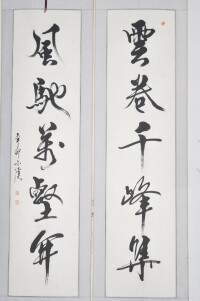 雲卷千峰集
風馳萬壑開